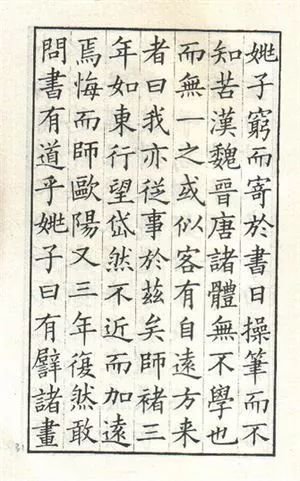 姚子窮而寄於書日操筆而不
知苦漢魏晉唐諸體無不學也
而無一之或似客有自遠方来
者曰我亦從事於兹矣師褚三
年如東行望岱然不近而加遠
焉悔而師歐陽又三年復然敢
問書有道乎姚子曰有譬諸畫
31